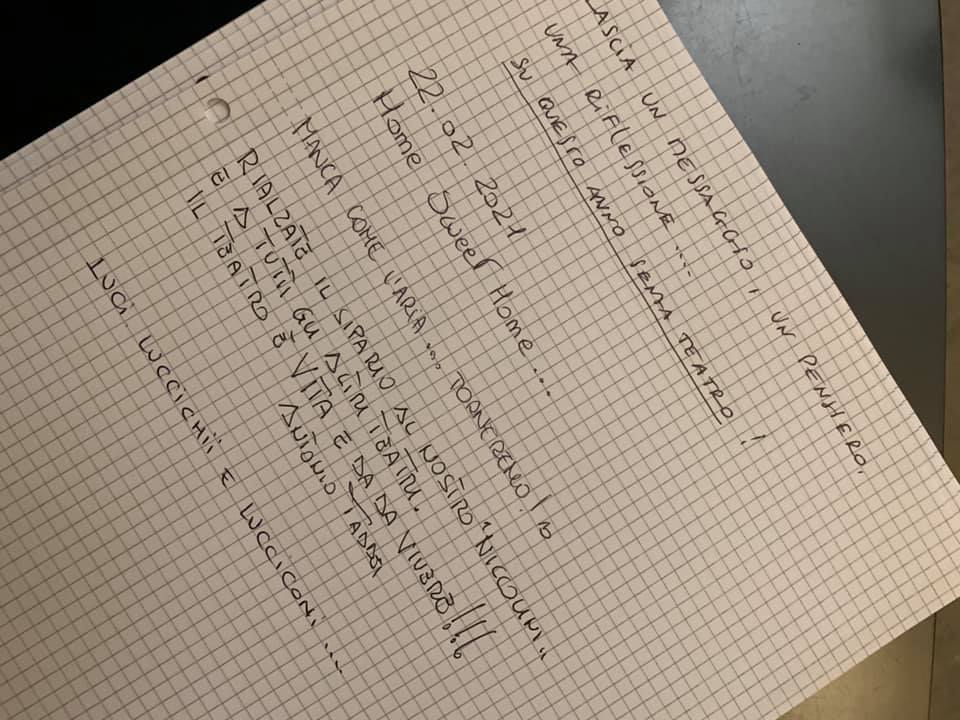 LASCIA UN MESSAGGIO, UN PENSIERO,
UNA RIFLESSIONE ....
SU QUESTO ANNO SENZA TEATRO!
22.02.2021
Home Sweet Home....
MANCA COME L'ARIA... TORNEREMO!
RIALZATE IL SIPARIO AL NOSTRO "NICCOLINI"
E A TUTTI GLI ALTRI TEATRI.
IL TEATRO È VITA E DA DA VIVERE!!!
ANTONIO TADDEI
LUCI LUCCICHII E LUCCICONI ....